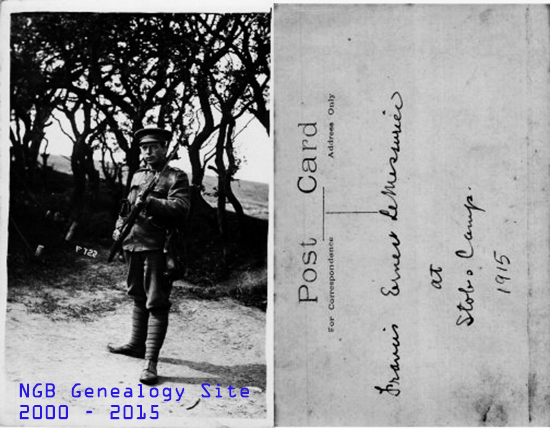 F 722
NGB Genealogy Site
2000 - 2015
Post Card
For Correspondence
Address Only
Francis Ernest LeMessurier
at
Stobs Camp.
1915